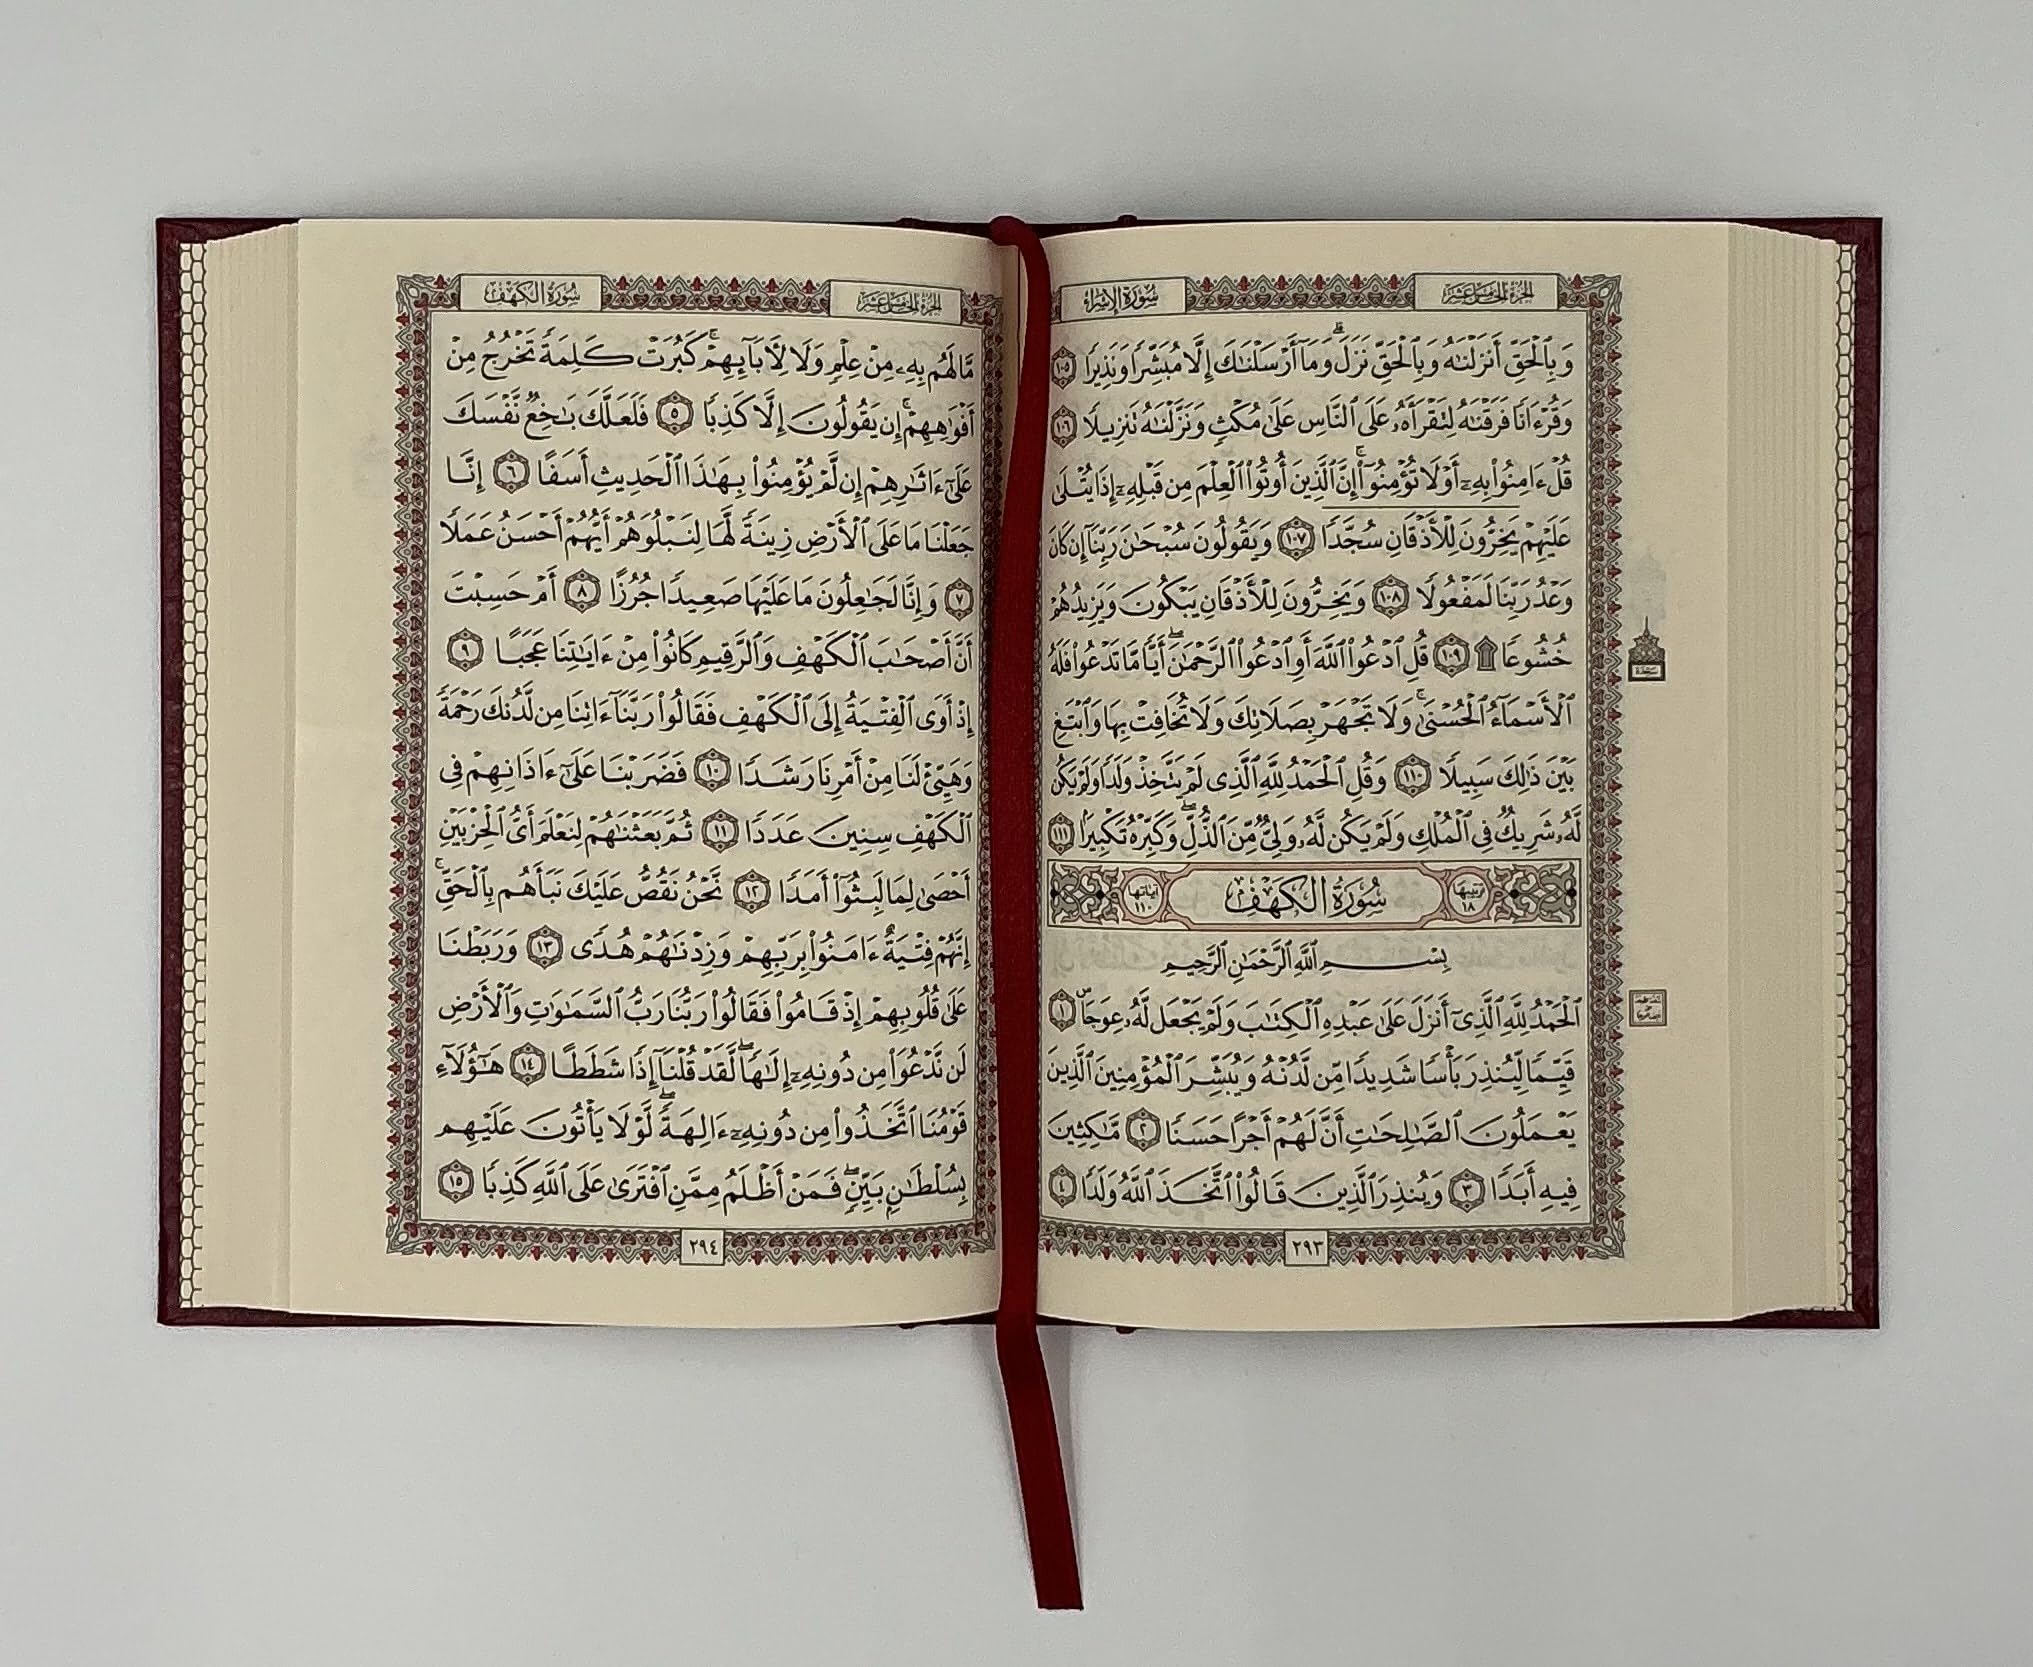 الجزء الخامس عشر
سورة الإسراء
وَبِٱلْحَقِّ أَنزَلْنَٰهُ وَبِٱلْحَقِّ نَزَلَ ۗ وَمَآ أَرْسَلْنَٰكَ إِلَّا مُبَشِّرًا وَنَذِيرًا ١٠٥
وَقُرْءَانًا فَرَقْنَٰهُ لِتَقْرَأَهُۥ عَلَى ٱلنَّاسِ عَلَىٰ مُكْثٍ وَنَزَّلْنَٰهُ تَنزِيلًا ١٠٦
قُلْ ءَامِنُوا۟ بِهِۦٓ أَوْ لَا تُؤْمِنُوٓا۟ ۚ إِنَّ ٱلَّذِينَ أُوتُوا۟ ٱلْعِلْمَ مِن قَبْلِهِۦٓ إِذَا يُتْلَىٰ
عَلَيْهِمْ يَخِرُّونَ لِلْأَذْقَانِ سُجَّدًا ١٠٧ وَيَقُولُونَ سُبْحَٰنَ رَبِّنَآ إِن كَانَ
وَعْدُ رَبِّنَا لَمَفْعُولًا ١٠٨ وَيَخِرُّونَ لِلْأَذْقَانِ يَبْكُونَ وَيَزِيدُهُمْ
خُشُوعًا ۩ ١٠٩ قُلِ ٱدْعُوا۟ ٱللَّهَ أَوِ ٱدْعُوا۟ ٱلرَّحْمَٰنَ ۖ أَيًّا مَّا تَدْعُوا۟ فَلَهُ
سجدة
ٱلْأَسْمَآءُ ٱلْحُسْنَىٰ ۚ وَلَا تَجْهَرْ بِصَلَاتِكَ وَلَا تُخَافِتْ بِهَا وَٱبْتَغِ
بَيْنَ ذَٰلِكَ سَبِيلًا ١١٠ وَقُلِ ٱلْحَمْدُ لِلَّهِ ٱلَّذِى لَمْ يَتَّخِذْ وَلَدًا وَلَمْ يَكُن
لَّهُۥ شَرِيكٌ فِى ٱلْمُلْكِ وَلَمْ يَكُن لَّهُۥ وَلِىٌّ مِّنَ ٱلذُّلِّ ۖ وَكَبِّرْهُ تَكْبِيرًۢا ١١١
ترتيبها ١٨ سُورَةُ الكَهْفِ آياتها ١١٠
بِسْمِ ٱللَّهِ ٱلرَّحْمَٰنِ ٱلرَّحِيمِ
ٱلْحَمْدُ لِلَّهِ ٱلَّذِىٓ أَنزَلَ عَلَىٰ عَبْدِهِ ٱلْكِتَٰبَ وَلَمْ يَجْعَل لَّهُۥ عِوَجَاۜ ١
قَيِّمًا لِّيُنذِرَ بَأْسًا شَدِيدًا مِّن لَّدُنْهُ وَيُبَشِّرَ ٱلْمُؤْمِنِينَ ٱلَّذِينَ
يَعْمَلُونَ ٱلصَّٰلِحَٰتِ أَنَّ لَهُمْ أَجْرًا حَسَنًا ٢ مَّٰكِثِينَ
فِيهِ أَبَدًا ٣ وَيُنذِرَ ٱلَّذِينَ قَالُوا۟ ٱتَّخَذَ ٱللَّهُ وَلَدًا ٤
٢٩٣
الجزء الخامس عشر
سورة الكهف
مَّا لَهُم بِهِۦ مِنْ عِلْمٍ وَلَا لِـَٔابَآئِهِمْ ۚ كَبُرَتْ كَلِمَةً تَخْرُجُ مِنْ
أَفْوَٰهِهِمْ ۚ إِن يَقُولُونَ إِلَّا كَذِبًا ٥ فَلَعَلَّكَ بَٰخِعٌ نَّفْسَكَ
عَلَىٰٓ ءَاثَٰرِهِمْ إِن لَّمْ يُؤْمِنُوا۟ بِهَٰذَا ٱلْحَدِيثِ أَسَفًا ٦ إِنَّا
جَعَلْنَا مَا عَلَى ٱلْأَرْضِ زِينَةً لَّهَا لِنَبْلُوَهُمْ أَيُّهُمْ أَحْسَنُ عَمَلًا
٧ وَإِنَّا لَجَٰعِلُونَ مَا عَلَيْهَا صَعِيدًا جُرُزًا ٨ أَمْ حَسِبْتَ
أَنَّ أَصْحَٰبَ ٱلْكَهْفِ وَٱلرَّقِيمِ كَانُوا۟ مِنْ ءَايَٰتِنَا عَجَبًا ٩
إِذْ أَوَى ٱلْفِتْيَةُ إِلَى ٱلْكَهْفِ فَقَالُوا۟ رَبَّنَآ ءَاتِنَا مِن لَّدُنكَ رَحْمَةً
وَهَيِّئْ لَنَا مِنْ أَمْرِنَا رَشَدًا ١٠ فَضَرَبْنَا عَلَىٰٓ ءَاذَانِهِمْ فِى
ٱلْكَهْفِ سِنِينَ عَدَدًا ١١ ثُمَّ بَعَثْنَٰهُمْ لِنَعْلَمَ أَىُّ ٱلْحِزْبَيْنِ
أَحْصَىٰ لِمَا لَبِثُوٓا۟ أَمَدًا ١٢ نَّحْنُ نَقُصُّ عَلَيْكَ نَبَأَهُم بِٱلْحَقِّ ۚ
إِنَّهُمْ فِتْيَةٌ ءَامَنُوا۟ بِرَبِّهِمْ وَزِدْنَٰهُمْ هُدًى ١٣ وَرَبَطْنَا
عَلَىٰ قُلُوبِهِمْ إِذْ قَامُوا۟ فَقَالُوا۟ رَبُّنَا رَبُّ ٱلسَّمَٰوَٰتِ وَٱلْأَرْضِ
لَن نَّدْعُوَا۟ مِن دُونِهِۦٓ إِلَٰهًا ۖ لَّقَدْ قُلْنَآ إِذًا شَطَطًا ١٤ هَٰٓؤُلَآءِ
قَوْمُنَا ٱتَّخَذُوا۟ مِن دُونِهِۦٓ ءَالِهَةً ۖ لَّوْلَا يَأْتُونَ عَلَيْهِم
بِسُلْطَٰنٍۭ بَيِّنٍ ۖ فَمَنْ أَظْلَمُ مِمَّنِ ٱفْتَرَىٰ عَلَى ٱللَّهِ كَذِبًا ١٥
٢٩٤